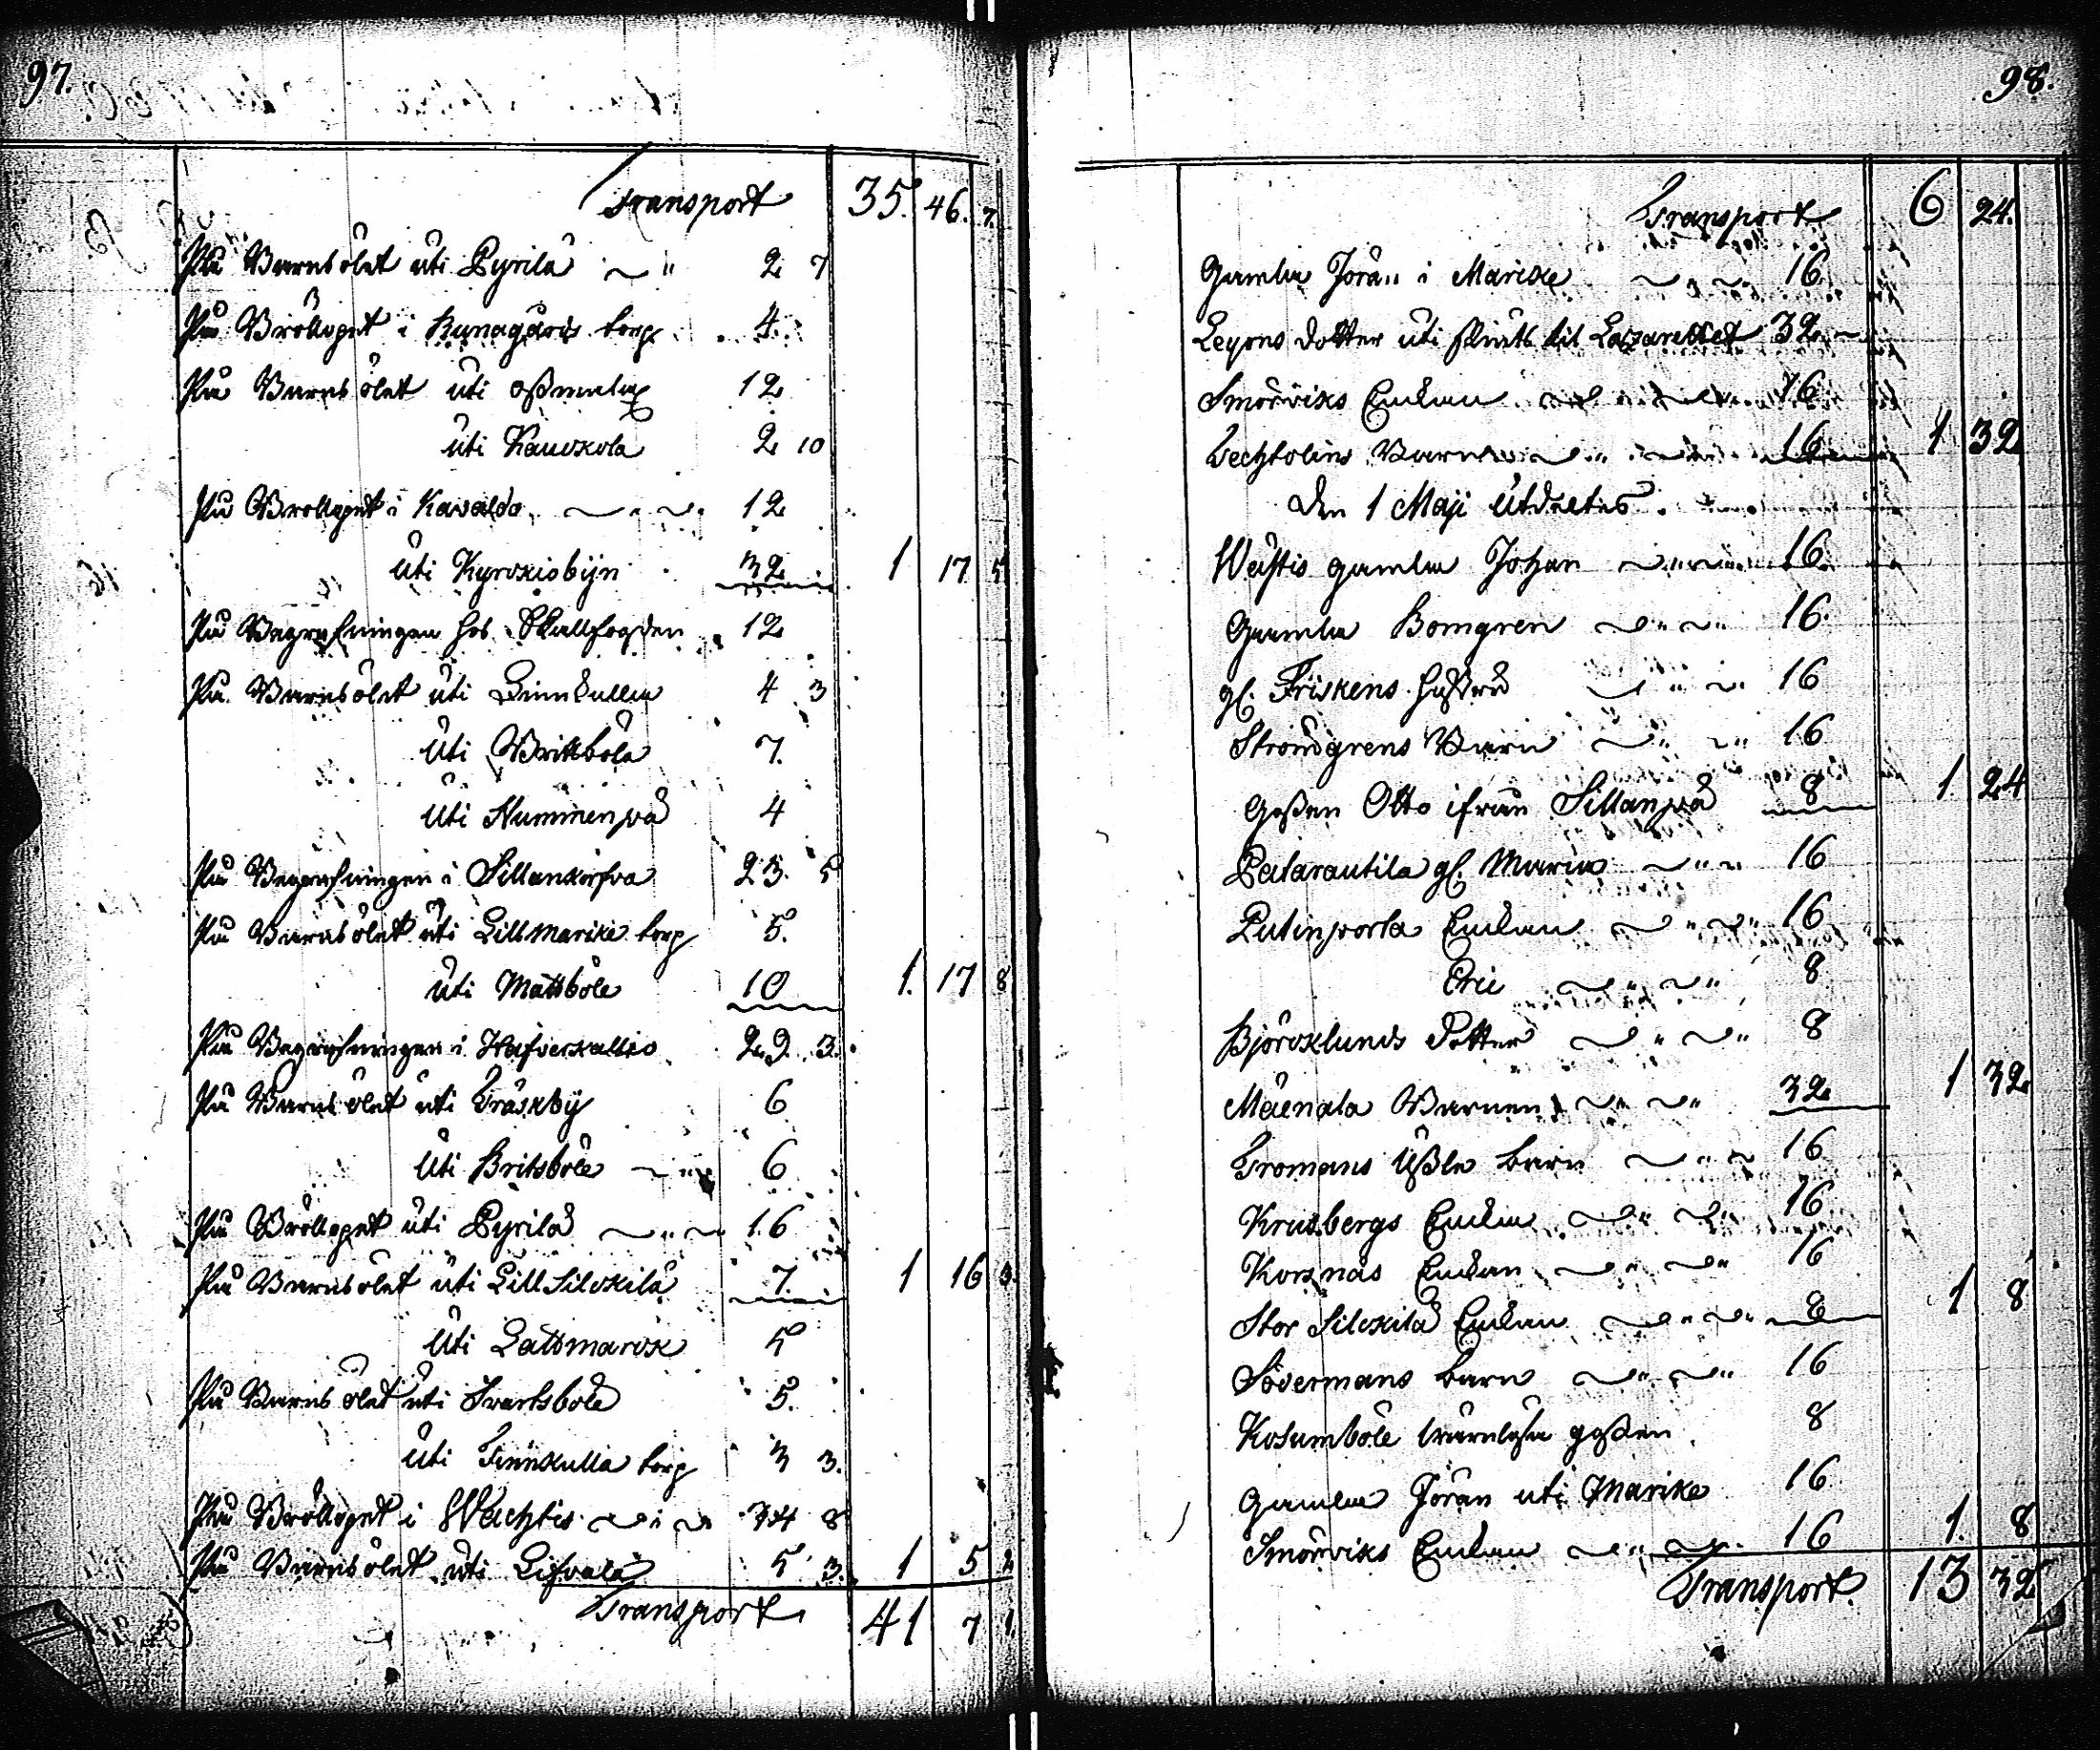 97.
Transport 35. 46. 7.
På Barnsölet uti Pyrilä 2 7
På Bröllopet i Kunagårds torp 4.
På Barnsölet uti Oßmala 12
uti Kauokola 2 10
På Bröllopet i Kavaldo 12
uti Kyrokiobÿn 32 1 17 5
På Begrafningen hos Skallfogden 12
På Barnsölet uti Finnkulla 4 3
uti Brittböle 7.
uti Nummenpä 4
På Begrafningen i Sillankorfva 23. 5
På Barnsölet uti Lillmarike torp 5.
uti Mattsböle 10 1. 17 8
På Begrafningen i Hafverkallio 29. 3.
På Barnsölet uti Träskbÿ 6
uti Britsböle 6
På Bröllopet uti Pyrilä 16
På Barnsölet uti Lill Silokilä 7. 1 16 3.
uti Lättmarsk 5
På Barnsölet uti Svartsbole 5.
uti Finnkulla torp 3 3.
På Bröllopet i Wachtis 34 8
På Barnsölet uti Lifvala 5 3. 1 5 2
Transport 41 7 1.
98.
Transport 6 24.
Gamla Jöran i Marike 16
Leyons dotter uti skiuts til Lazarettet 32
Smörviks Enkan 16
Vechtolins Barn 16 1 32
den 1 Maji Utdeltes
Westis gamla Johan 16.
Gamla Bomgren 16.
gl. Friskens hustru 16
Strömdgrens Barn 16
Goßen Otto ifrån Sillanpä 8 1. 24
Patarautila gl. Maria 16
Putinporta Enkan 16
Eric 8
Björoklunds Dotter 8
Mäenala Barnen 32 1 32
Tromans Ußla barn 16
Krusbergs Enka 16
Korsnäs Enkan 16
Stor Silokilä Enkan 8 1 8
Södermans barn 16
Kosumböle goßen 8
Gamla Jöran uti Marike 16
Smörviks Enkan 16 1. 8
Transport. 13 32